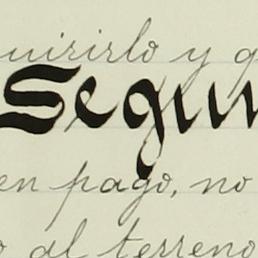 uirirlo y q
Segun
en pago, no
o al terreno